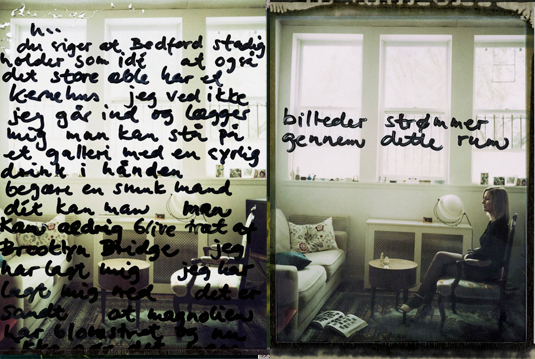 du siger at Bedford stadig
holder som idé at også
det store æble har et
kernehus jeg ved ikke
jeg går ind og lægger
mig man kan stå på
et galleri med en syrlig
drink i hånden
begære en smuk mand
dét kan man man
kan aldrig blive træt af
Brooklyn Bridge jeg
har lagt mig jeg har
lagt mig ned det er
sandt at magnolien
har blomstret og nu
billeder strømmer
gennem dette rum